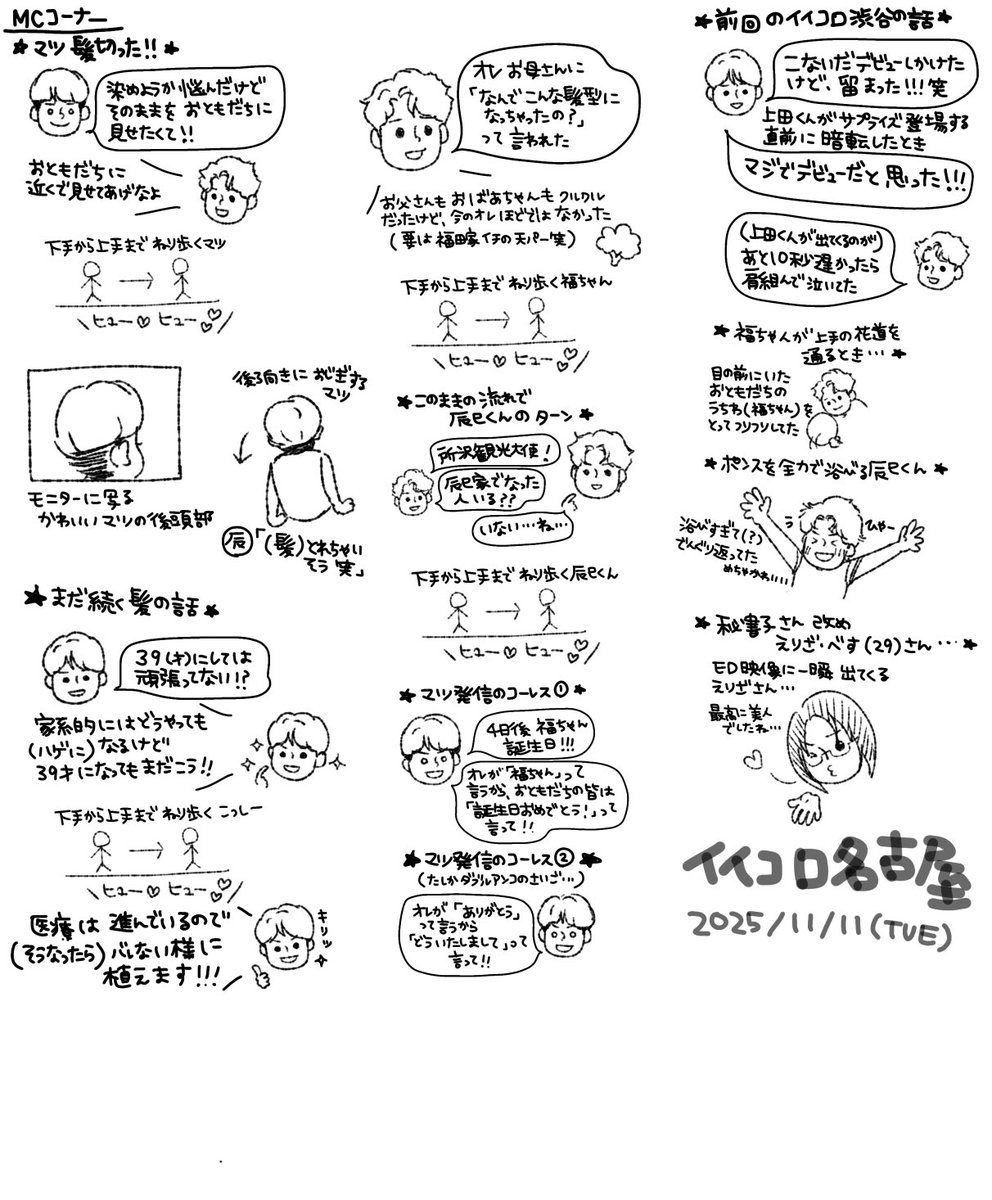 MCコーナー
★マツ髪切った!!★
染めようか悩んだけど
そのままを おともだちに
見せたくて!!
おともだちに
近くで見せてあげなよ
下手から上手まで ねり歩くマツ
\ヒュー♡ ヒュー♡/
モニターに写る
かわいいマツの後頭部
後ろ向きに おじぎする
マツ
辰「(髪)とれちゃい
そう 笑」
★まだ続く髪の話★
39(才)にしては
頑張ってない!?
家系的にはどうやっても
(ハゲに)なるけど
39才になってもまだこう!!
下手から上手まで ねり歩く こっしー
\ヒュー♡ ヒュー♡/
医療は 進んでいるので
(そうなったら)バレない様に
植えます!!!
キリッ
オレ お母さんに
「なんでこんな髪型に
なっちゃったの?」
って言われた
お父さんも おばあちゃんも クルクル
だったけど、今のオレほどではなかった
(要は福田家イチの天パー笑)
下手から上手まで ねり歩く福ちゃん
\ヒュー♡ ヒュー♡/
★このままの流れで
辰巳くんの ターン★
所沢観光大使!
辰巳家でなった
人いる??
いない…ね…
下手から上手まで ねり歩く辰巳くん
\ヒュー♡ ヒュー♡/
★マツ発信のコーレス①★
4日後 福ちゃん
誕生日!!!
オレが「福ちゃん」って
言うから、おともだちの皆は
「誕生日おめでとう!」って
言って!!
★マツ発信のコーレス②★
(たしかダブルアンコのさいご…)
オレが「ありがとう」
って言うから
「どういたしまして」って
言って!!
★前回のイイコロ渋谷の話★
こないだデビューしかけた
けど、留まった!!!笑
上田くんがサプライズ登場する
直前に暗転したとき
マジでデビューだと思った!!!
(上田くんが出てくるのが)
あと10秒遅かったら
肩組んで泣いてた
★福ちゃんが上手の花道を
通るとき…★
目の前にいた
おともだちの
うちわ(福ちゃん)を
とってフリフリしてた
★ポンスを全力で浴びる辰巳くん★
う
ひゃー
浴びすぎて(?)
でんぐり返ってた
めちゃかわ....
★秘書子さん 改め
えりざ・べす(29)さん…★
ED映像に一瞬 出てくる
えりざさん…
最高に美人
でしたね…
イイコロ名古屋
2025/11/11(TUE)